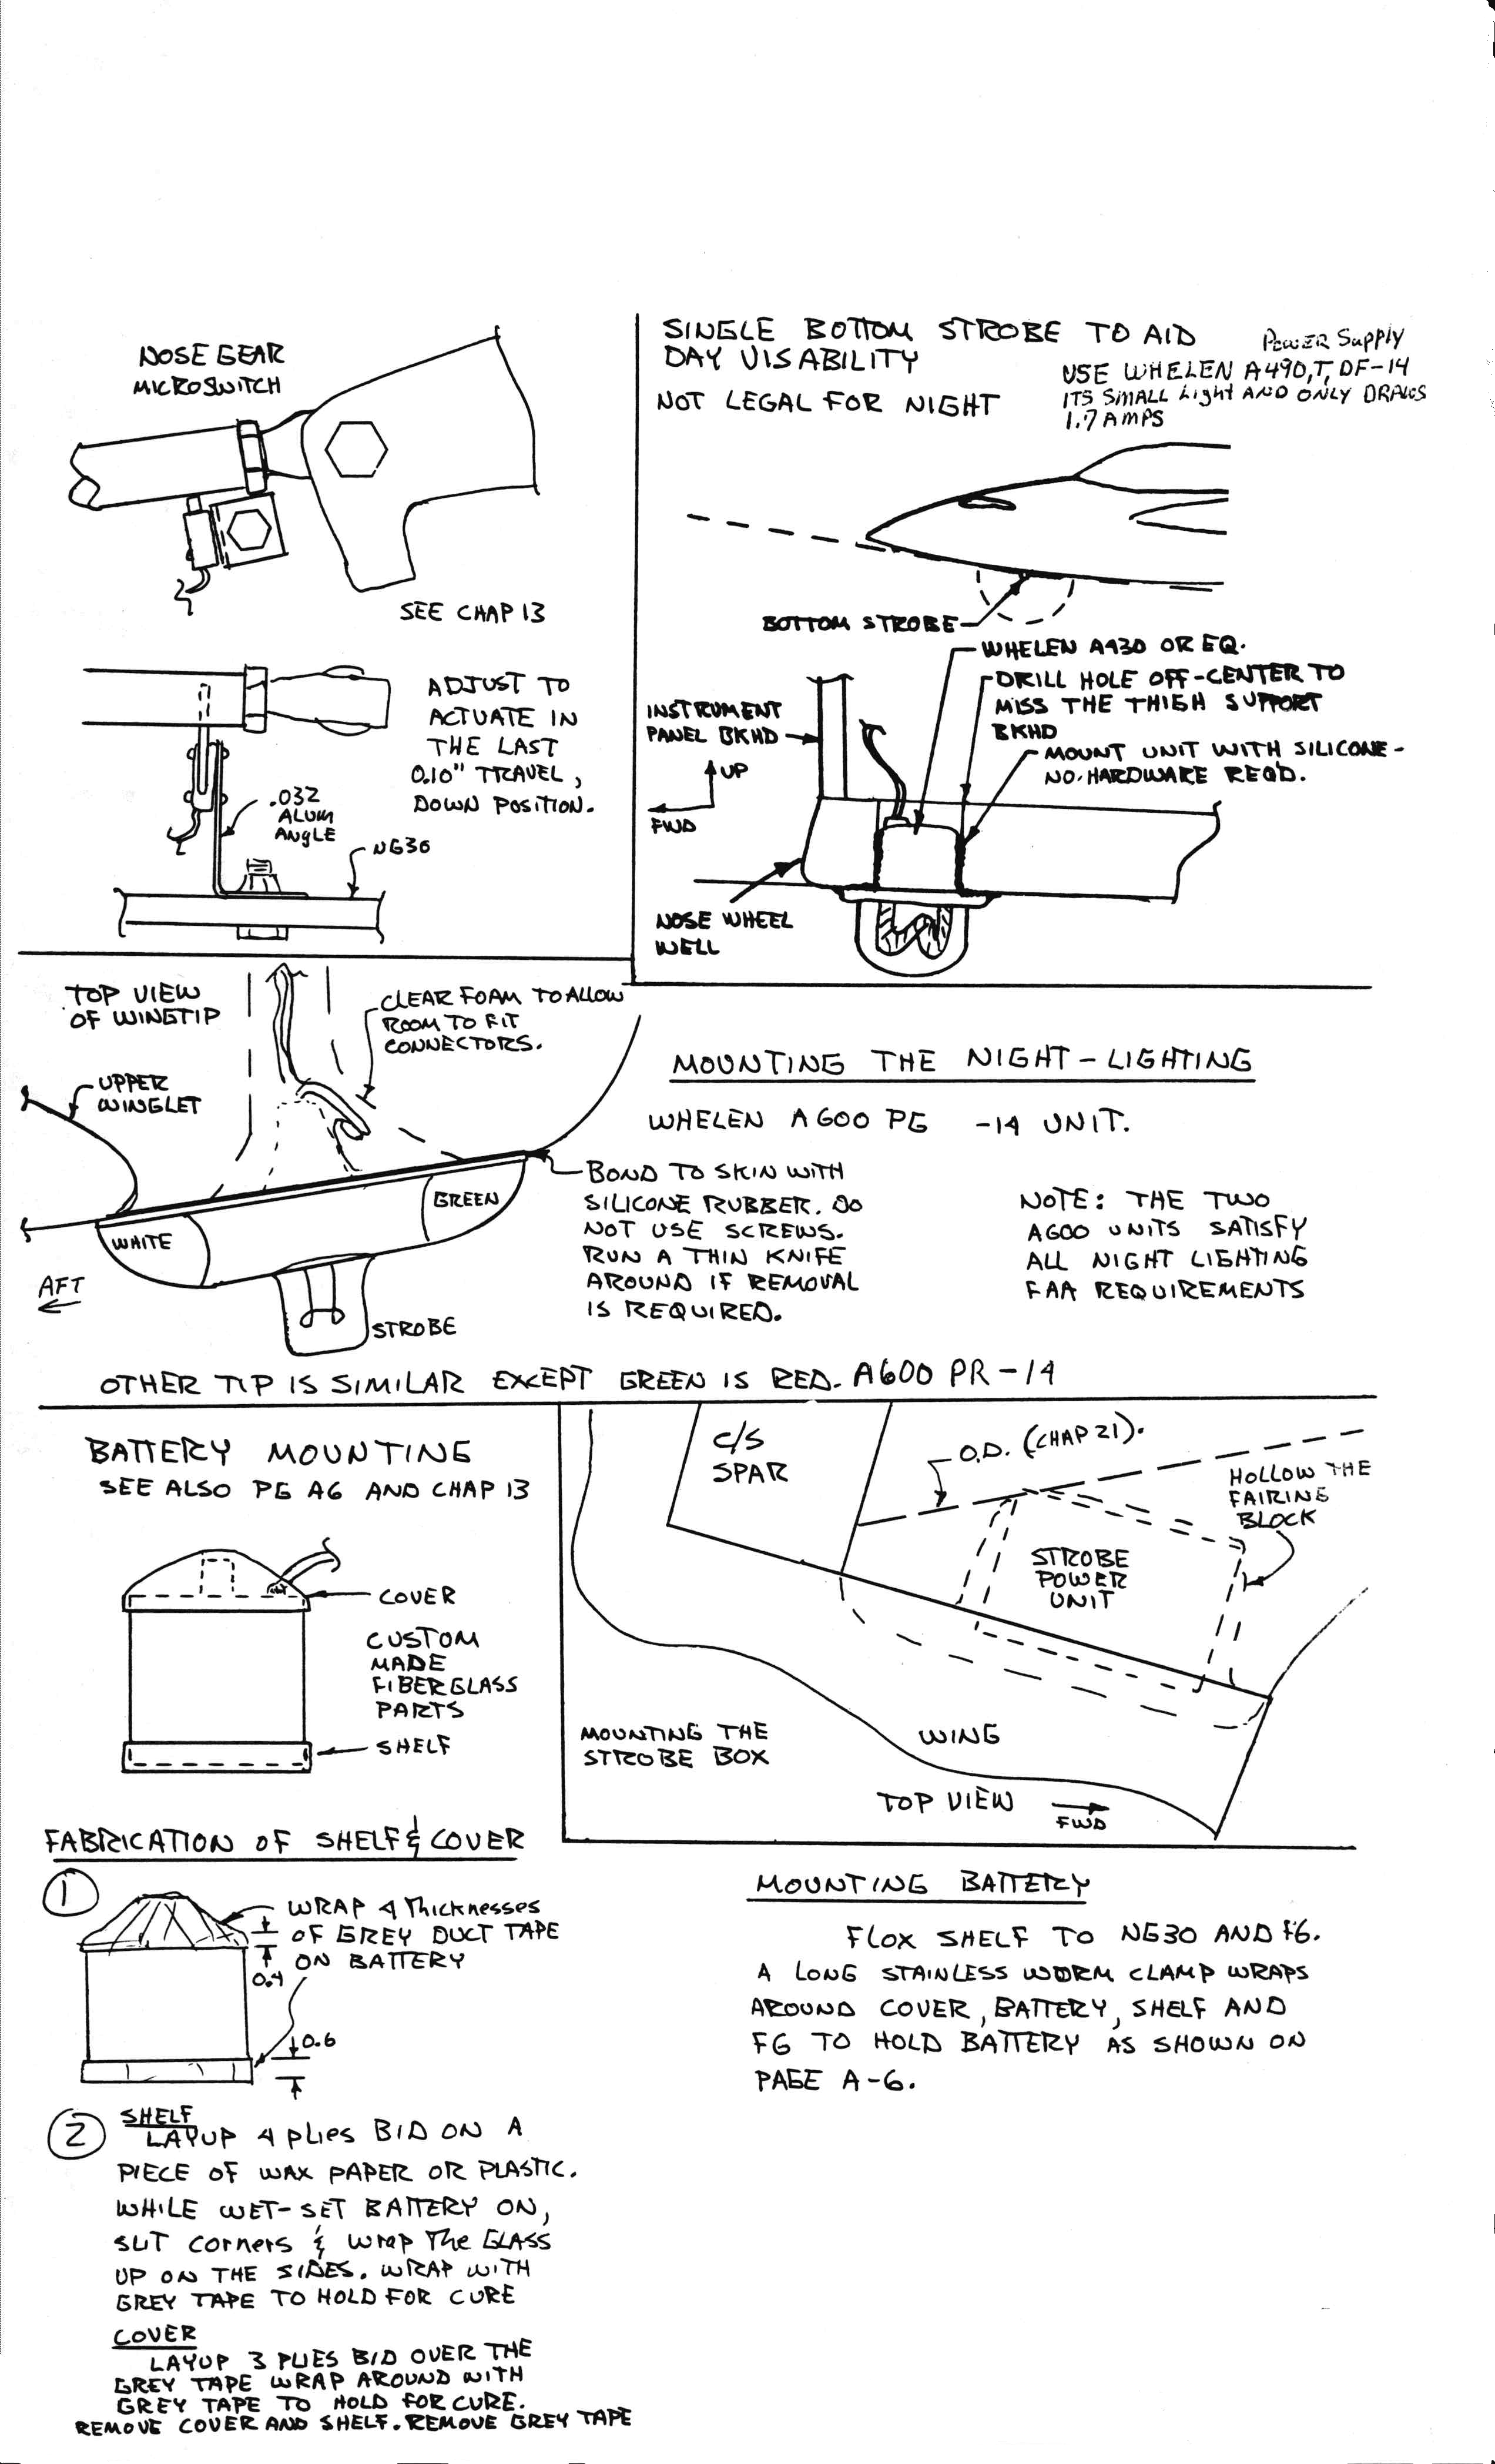 NOSE GEAR
MICROSWITCH
SEE CHAP 13
ADJUST TO
ACTUATE IN
THE LAST
0.10" TRAVEL,
DOWN POSITION.
.032
ALUM
ANGLE
NG30
SINGLE BOTTOM STROBE TO AID
DAY VISABILITY
NOT LEGAL FOR NIGHT
POWER Supply
USE WHELEN A490,T,DF-14
ITS SMALL Light AND ONLY DRAWS
1.7 AMPS
BOTTOM STROBE
WHELEN A430 OR EQ.
DRILL HOLE OFF-CENTER TO
MISS THE THIGH SUPPORT
BKHD
MOUNT UNIT WITH SILICONE-
NO. HARDWARE REQD.
INSTRUMENT
PANEL BKHD
UP
FWD
NOSE WHEEL
WELL
TOP VIEW
OF WINGTIP
CLEAR FOAM TO ALLOW
ROOM TO FIT
CONNECTORS.
UPPER
WINGLET
MOUNTING THE NIGHT-LIGHTING
WHELEN A600 PG -14 UNIT.
BOND TO SKIN WITH
SILICONE RUBBER. DO
NOT USE SCREWS.
RUN A THIN KNIFE
AROUND IF REMOVAL
IS REQUIRED.
NOTE: THE TWO
A600 UNITS SATISFY
ALL NIGHT LIGHTING
FAA REQUIREMENTS
GREEN
WHITE
AFT
STROBE
OTHER TIP IS SIMILAR EXCEPT GREEN IS RED. A600 PR-14
BATTERY MOUNTING
SEE ALSO PG A6 AND CHAP 13
COVER
CUSTOM
MADE
FIBERGLASS
PARTS
SHELF
C/S
SPAR
O.D. (CHAP 21).
HOLLOW THE
FAIRING
BLOCK
STROBE
POWER
UNIT
MOUNTING THE
STROBE BOX
WING
TOP VIEW
FWD
FABRICATION OF SHELF & COVER
1
WRAP 4 Thicknesses
OF GREY DUCT TAPE
ON BATTERY
0.4
0.6
2
SHELF
LAYUP 4 plies BID ON A
PIECE OF WAX PAPER OR PLASTIC.
WHILE WET-SET BATTERY ON,
SLIT corners & wrap The GLASS
UP ON THE SIDES. WRAP WITH
GREY TAPE TO HOLD FOR CURE
COVER
LAYUP 3 PLIES BID OVER THE
GREY TAPE WRAP AROUND WITH
GREY TAPE TO HOLD FOR CURE.
REMOVE COVER AND SHELF. REMOVE GREY TAPE
MOUNTING BATTERY
FLOX SHELF TO NG30 AND F6.
A LONG STAINLESS WORM CLAMP WRAPS
AROUND COVER, BATTERY, SHELF AND
F6 TO HOLD BATTERY AS SHOWN ON
PAGE A-6.